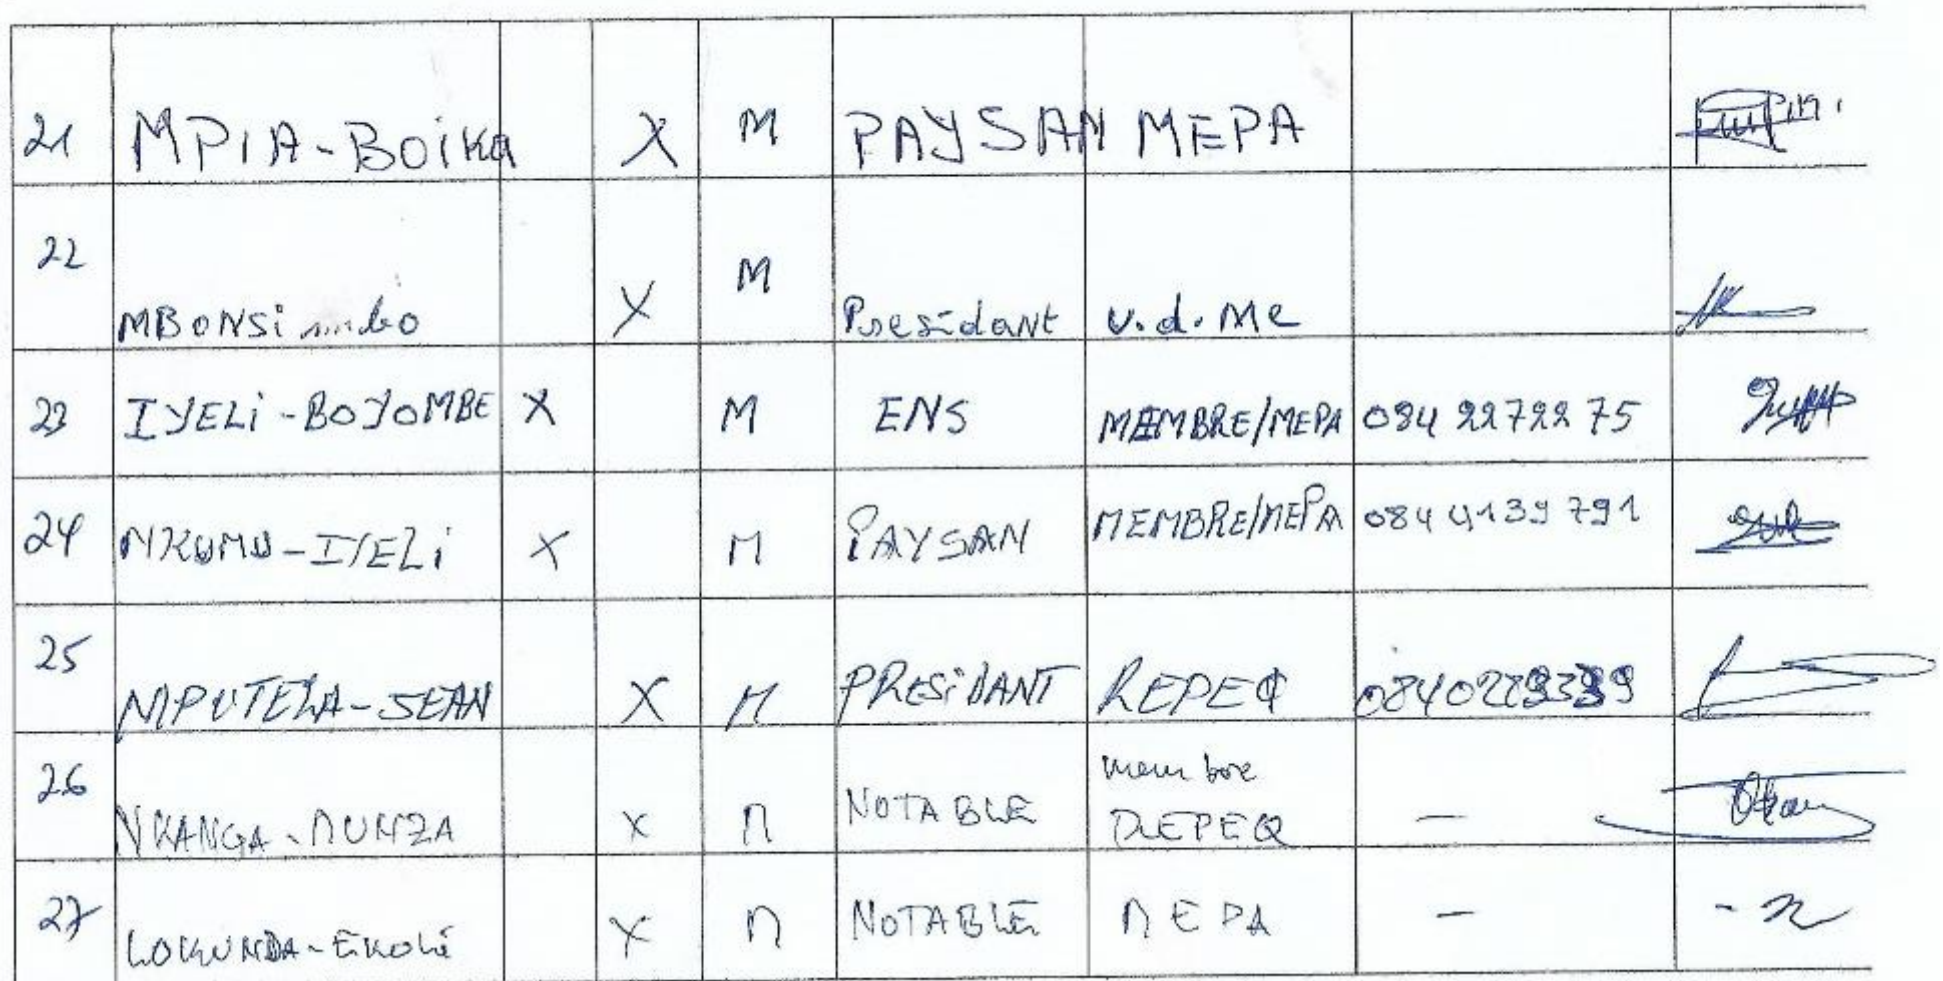 21 MPIA-BOiKa X M PAYSAN MEPA
22 MBONSi X M Presidant v.d.Me
23 IYELi-BOYOMBE X M ENS MEMBRE/MEPA 084 22722 75
24 NKUMU-IYELi X M PAYSAN MEMBRE/MEPA 084 4139 791
25 MPUTELA-JEAN X M PRESiDANT REPEQ
26 NKANGA-MUNZA X M NOTABLE membre REPEQ -
27 LOKUNDA-EKOLi X M NOTABLE MEPA -